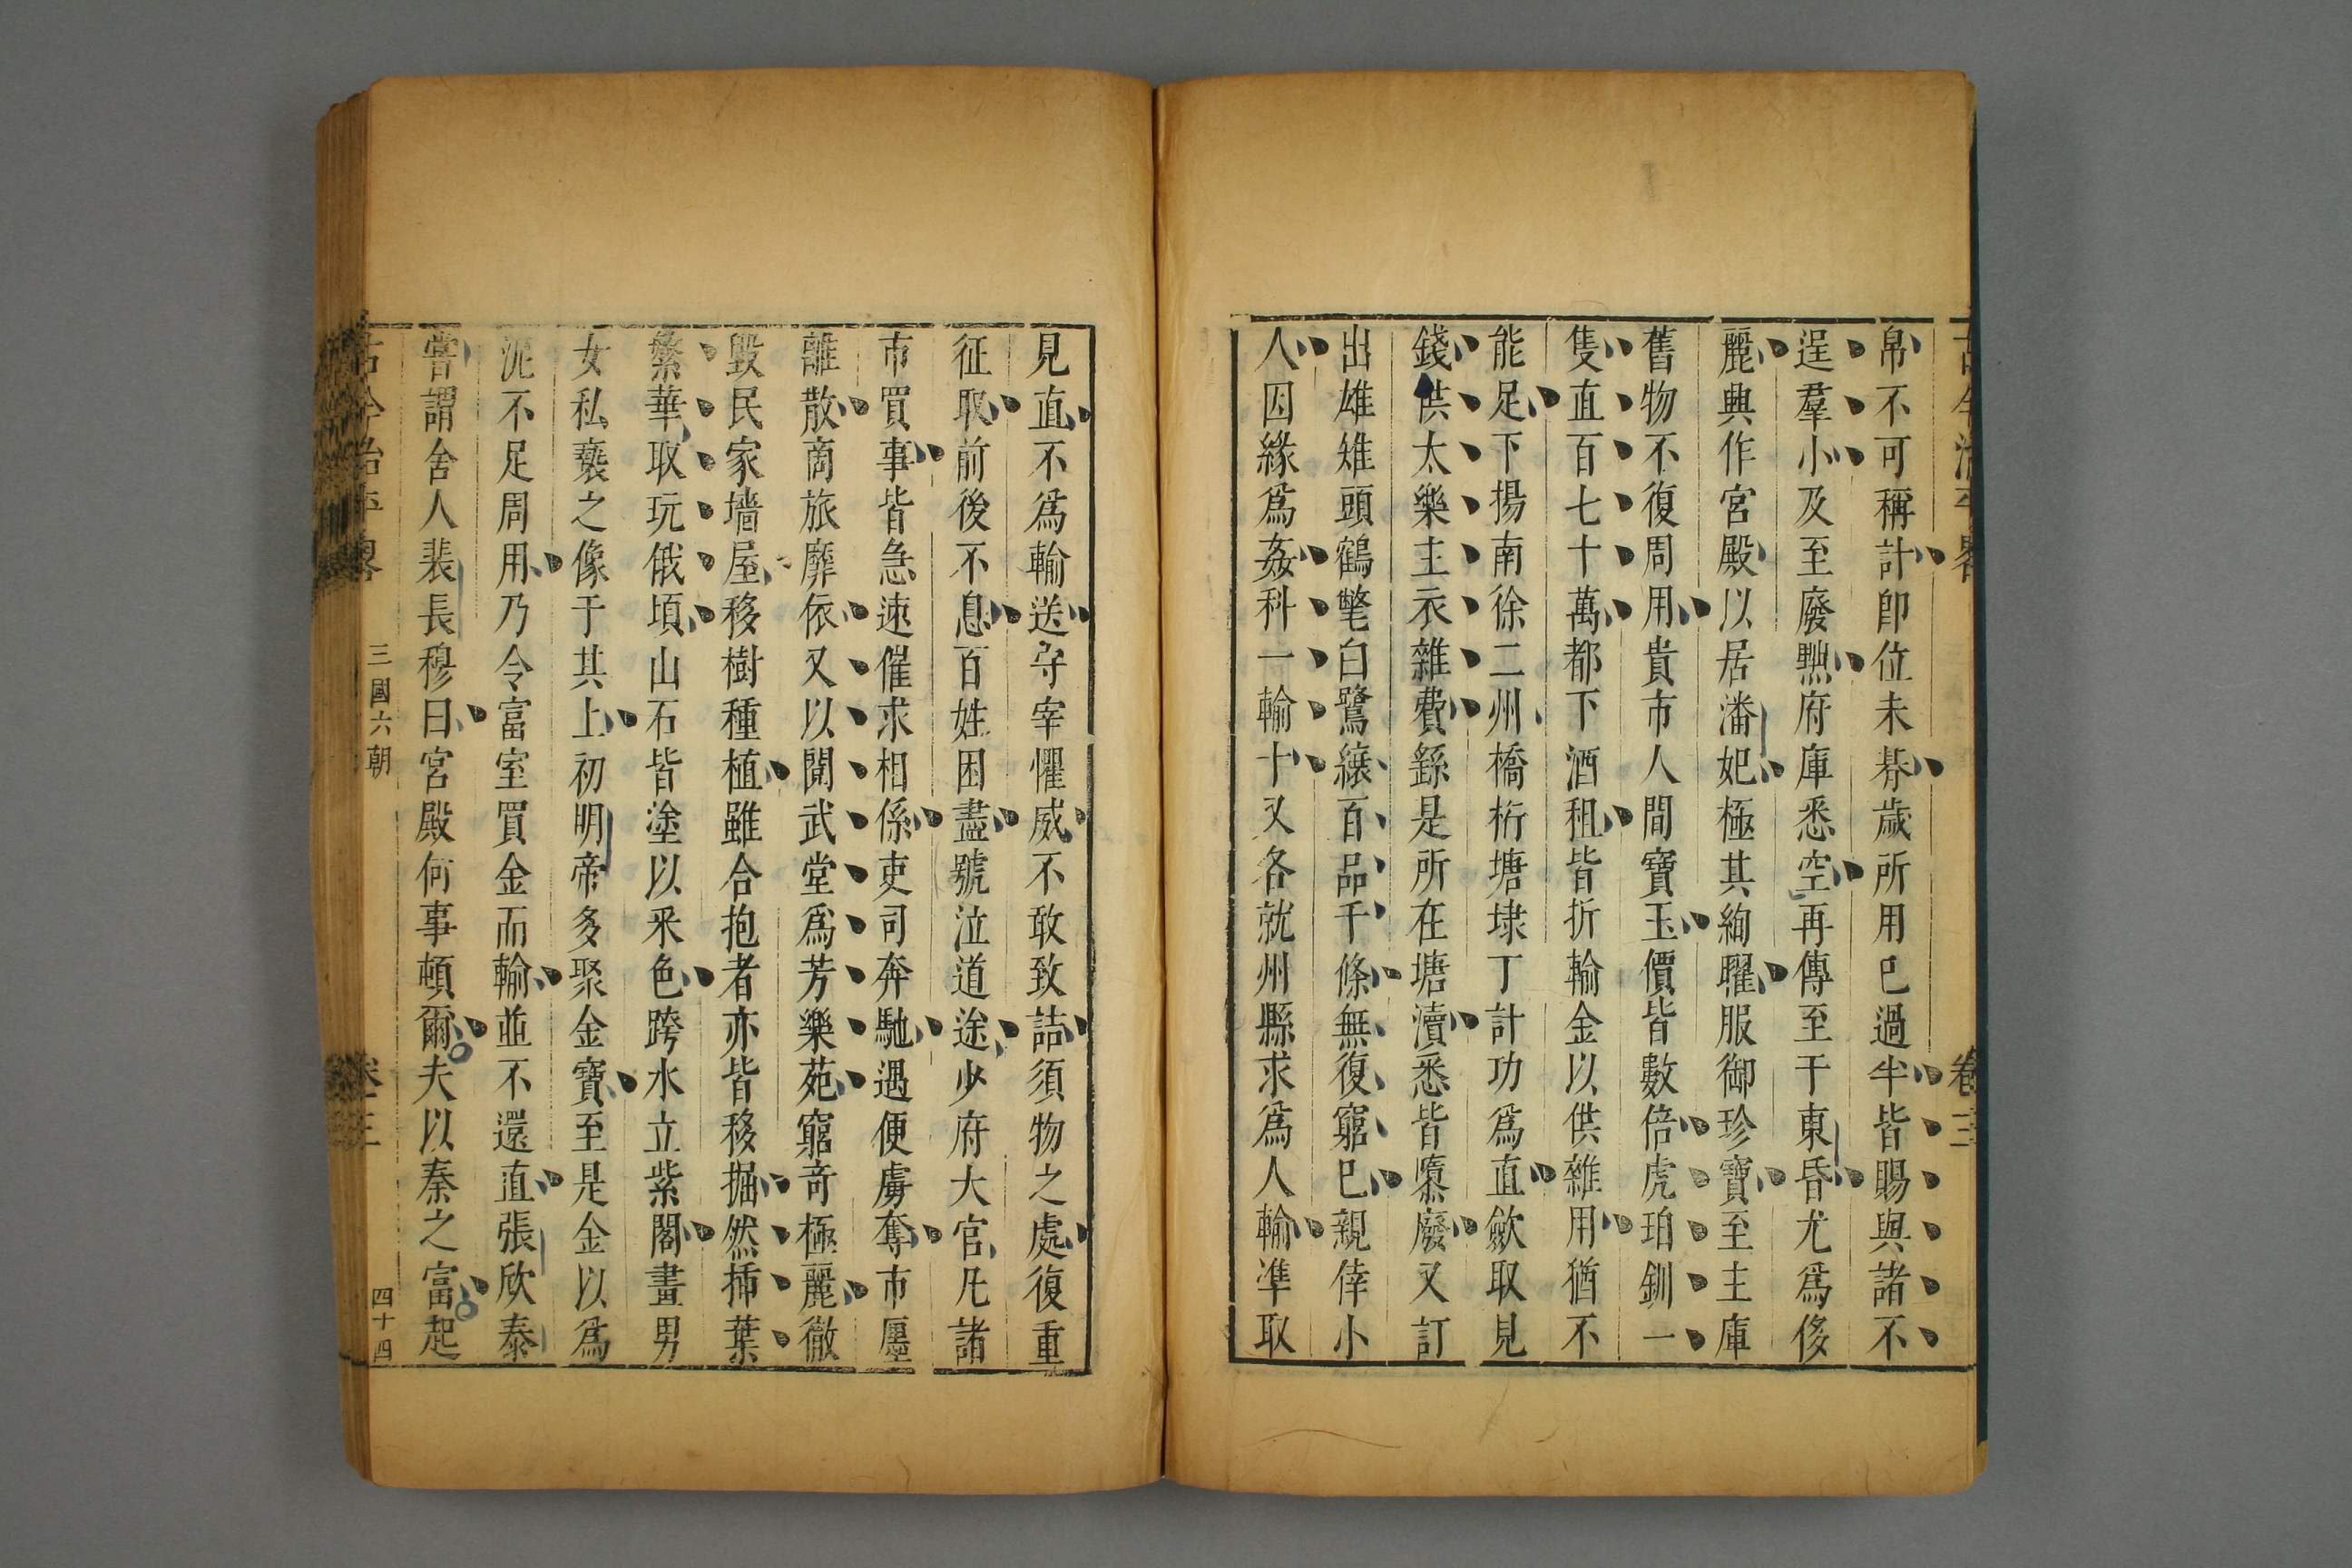 古今治平畧 卷三
帛不可稱計卽位未朞歲所用已過半皆賜與諸不
逞羣小及至廢黜府庫悉空再傳至于東昏尤爲侈
麗興作宮殿以居潘妃極其絢曜服御珍寶至主庫
舊物不復周用貴市人間寶玉價皆數倍虎珀釧一
隻直百七十萬都下酒租皆折輸金以供雜用猶不
能足下揚南徐二州橋桁塘埭丁計功爲直歛取見
錢供太樂主衣雜費繇是所在塘瀆悉皆隳廢又訂
出雄雉頭鶴氅白鷺縗百品千條無復窮已親倖小
人因緣爲姦科一輸十又各就州縣求爲人輸準取
見直不爲輸送守宰懼威不敢致詰須物之處復重
征取前後不息百姓困盡號泣道途少府大官凡諸
市買事皆急速催求相係吏司奔馳遇便虜奪市廛
離散商旅靡依又以閱武堂爲芳樂苑窮奇極麗徹
毀民家墻屋移樹種植雖合抱者亦皆移掘然揷葉
繁華取玩俄頃山石皆塗以采色跨水立紫閣畫男
女私褻之像于其上初明帝多聚金寶至是金以爲
泥不足周用乃令富室買金而輸並不還直張欣泰
嘗謂舍人裴長穆曰宮殿何事頓爾夫以秦之富起
古今治平畧 三國六朝 卷三 四十四